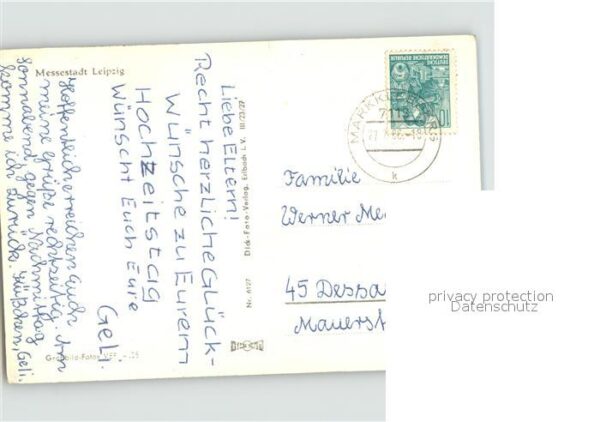 Messestadt Leipzig
Liebe Eltern!
Recht herzliche Glück-
wünsche zu Eurem
Hochzeitstag
wünscht Euch Eure
Geli.
Hoffentlich erreichen Euch
meine Grüße rechtzeitig. Am
Sonnabend gegen Nachmittag
komme ich zurück. Geli.
Dick-Foto-Verlag, Erlbach i. V. III/23/27
Nr. 6127
DEUTSCHE
DEMOKRATISCHE REPUBLIK
10
MARKKLEEBERG
k
Familie
Werner Me
45 Dessa
Mauerst
privacy protection
Datenschutz